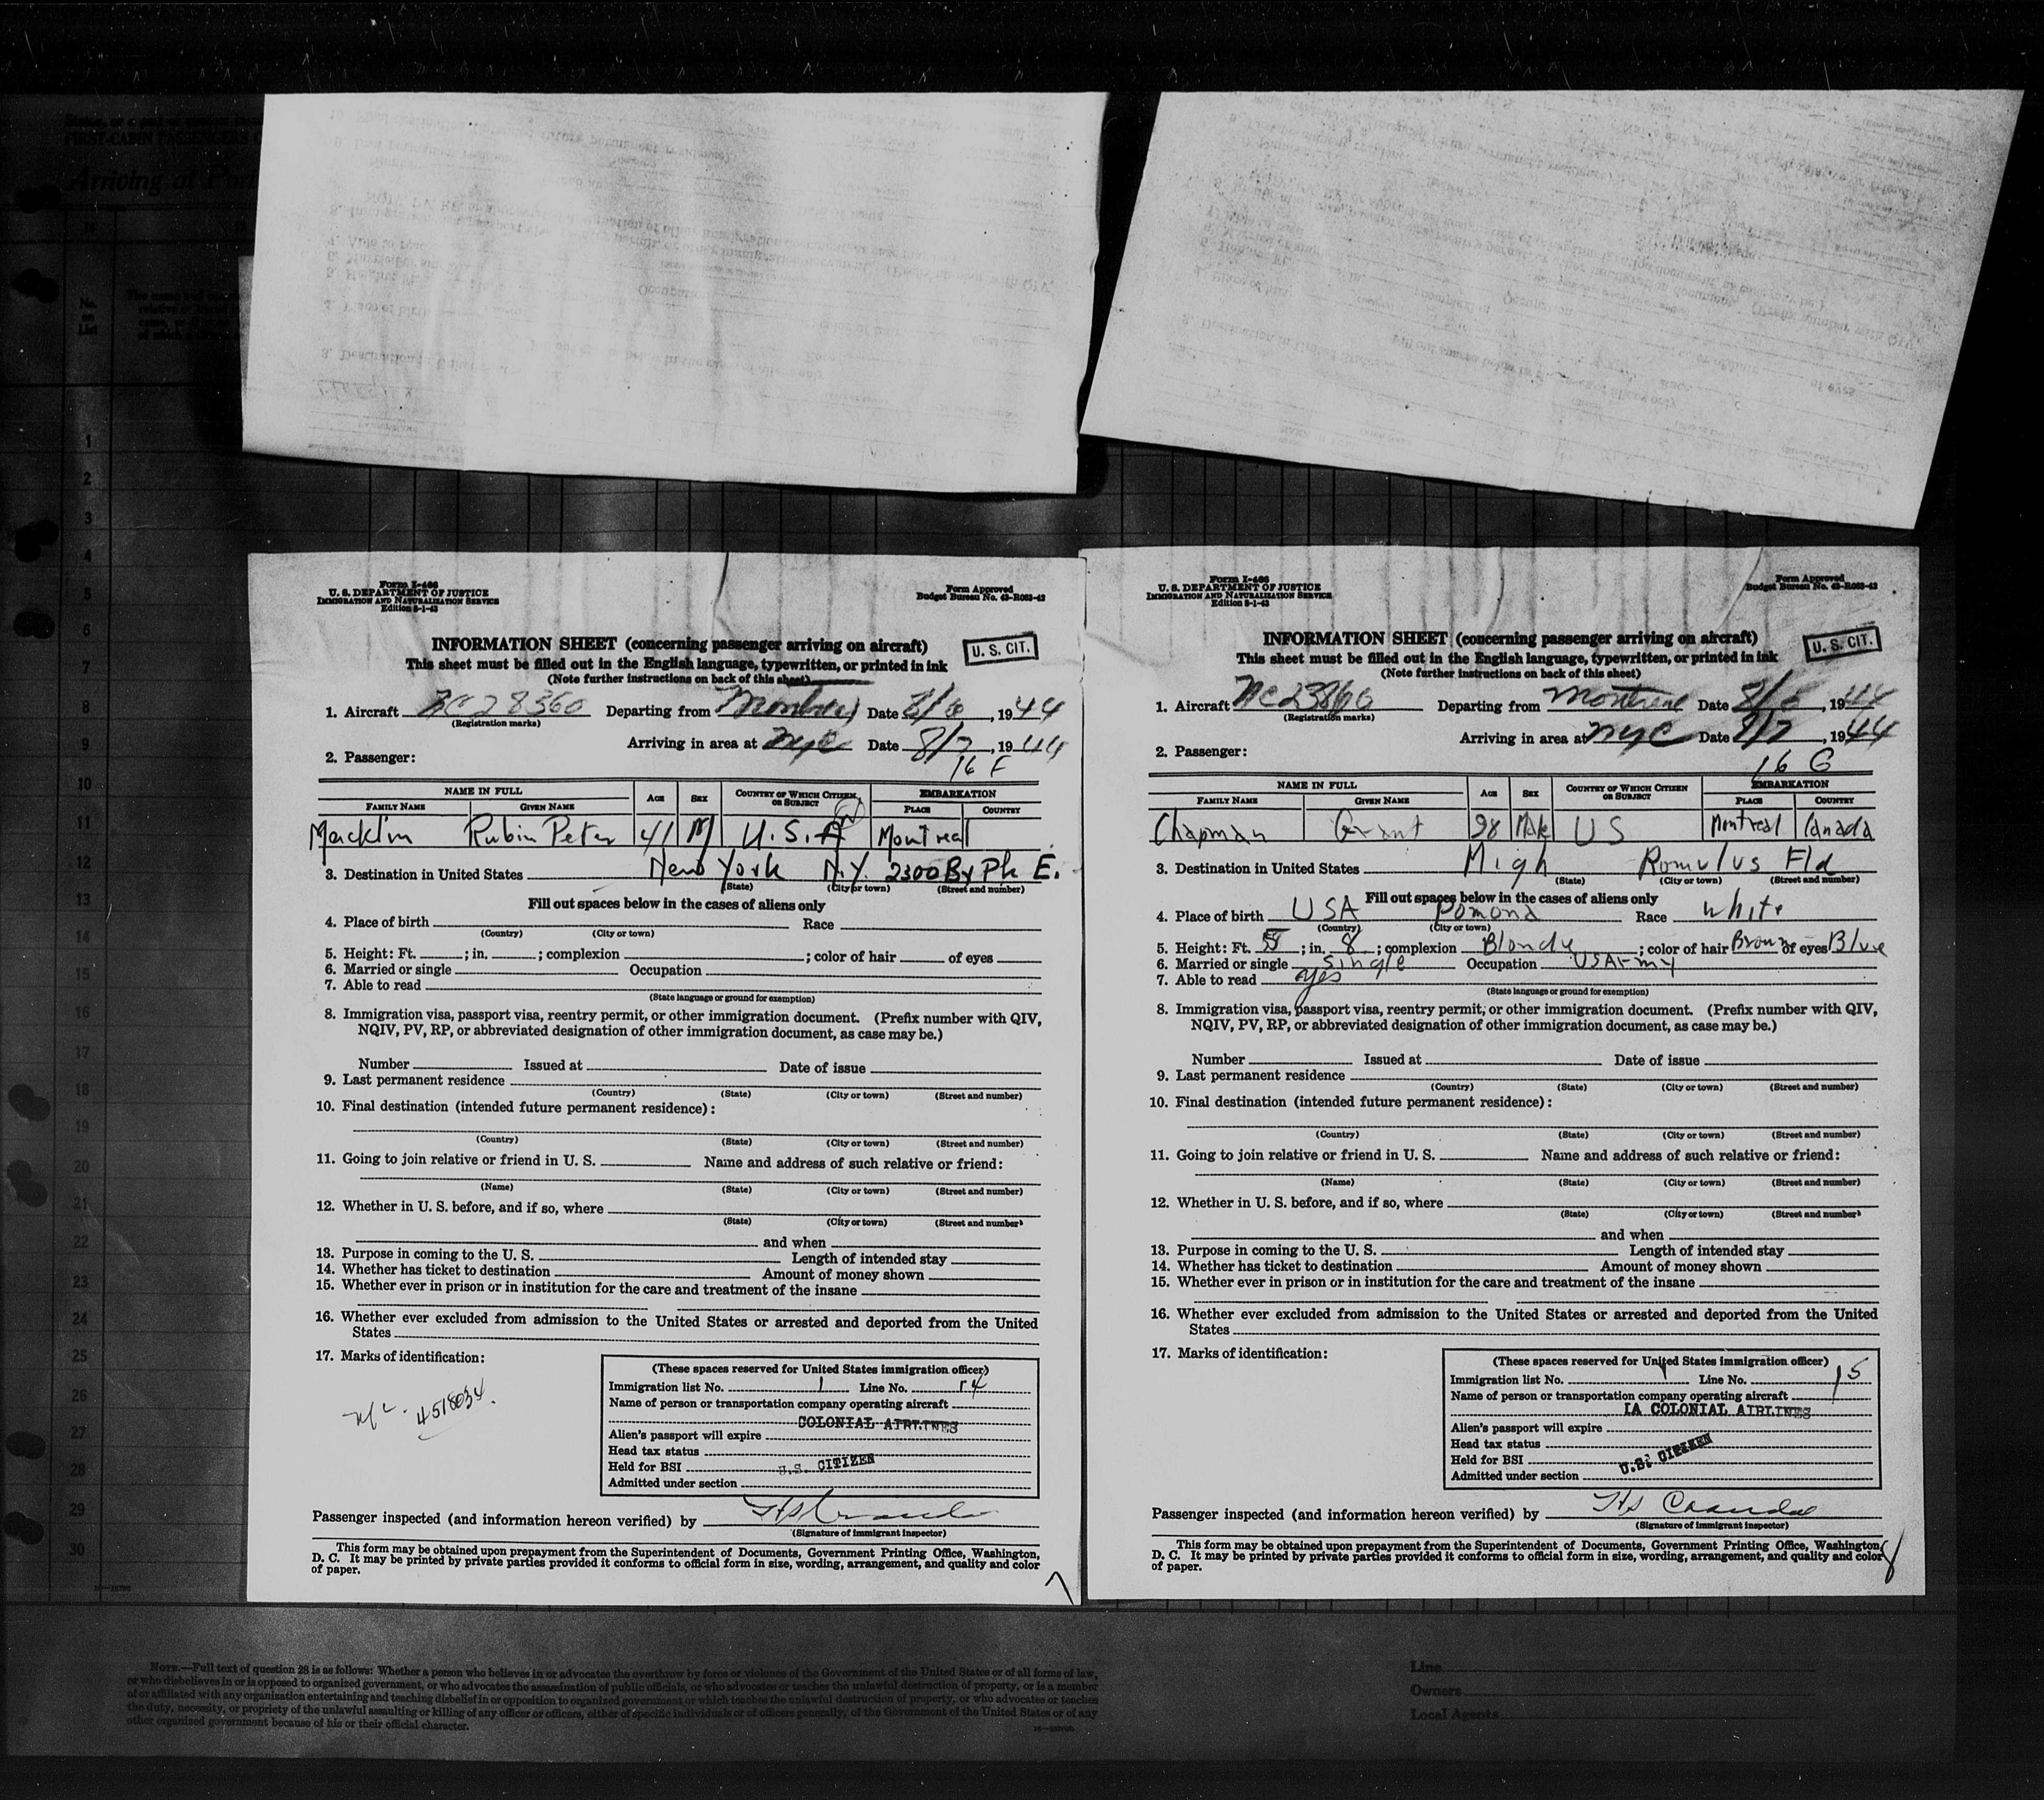 Form I-466
U. S. DEPARTMENT OF JUSTICE
IMMIGRATION AND NATURALIZATION SERVICE
Edition 8-1-43
Form Approved
Budget Bureau No. 43-R063-42
INFORMATION SHEET (concerning passenger arriving on aircraft)
U. S. CIT.
This sheet must be filled out in the English language, typewritten, or printed in ink
(Note further instructions on back of this sheet)
1. Aircraft NC 28360 Departing from Montreal Date 8/6, 1944
(Registration marks)
Arriving in area at NYC Date 8/7, 1944
2. Passenger:
16 F
NAME IN FULL AGE SEX COUNTRY OF WHICH CITIZEN OR SUBJECT EMBARKATION
FAMILY NAME GIVEN NAME PLACE COUNTRY
Macklin Rubin Peter 41 M U.S.A Montreal
3. Destination in United States New York N.Y. 2300 Bx Pk E.
(State) (City or town) (Street and number)
Fill out spaces below in the cases of aliens only
4. Place of birth Race
(Country) (City or town)
5. Height: Ft. ; in. ; complexion ; color of hair of eyes
6. Married or single Occupation
7. Able to read
(State language or ground for exemption)
8. Immigration visa, passport visa, reentry permit, or other immigration document. (Prefix number with QIV,
NQIV, PV, RP, or abbreviated designation of other immigration document, as case may be.)
Number Issued at Date of issue
9. Last permanent residence
(Country) (State) (City or town) (Street and number)
10. Final destination (intended future permanent residence):
(Country) (State) (City or town) (Street and number)
11. Going to join relative or friend in U. S. Name and address of such relative or friend:
(Name) (State) (City or town) (Street and number)
12. Whether in U. S. before, and if so, where
(State) (City or town) (Street and number)
and when
13. Purpose in coming to the U. S. Length of intended stay
14. Whether has ticket to destination Amount of money shown
15. Whether ever in prison or in institution for the care and treatment of the insane
16. Whether ever excluded from admission to the United States or arrested and deported from the United
States
17. Marks of identification:
4518034
(These spaces reserved for United States immigration officer)
Immigration list No. 1 Line No. 14
Name of person or transportation company operating aircraft
COLONIAL AIRLINES
Alien's passport will expire
Head tax status
Held for BSI U.S. CITIZEN
Admitted under section
Passenger inspected (and information hereon verified) by
(Signature of immigrant inspector)
This form may be obtained upon prepayment from the Superintendent of Documents, Government Printing Office, Washington,
D. C. It may be printed by private parties provided it conforms to official form in size, wording, arrangement, and quality and color
of paper.
Form I-466
U. S. DEPARTMENT OF JUSTICE
IMMIGRATION AND NATURALIZATION SERVICE
Edition 8-1-43
Form Approved
Budget Bureau No. 43-R063-42
INFORMATION SHEET (concerning passenger arriving on aircraft)
U. S. CIT.
This sheet must be filled out in the English language, typewritten, or printed in ink
(Note further instructions on back of this sheet)
1. Aircraft Departing from Montreal Date 8/6, 1944
(Registration marks)
Arriving in area at NYC Date 8/7, 1944
2. Passenger:
16 G
NAME IN FULL AGE SEX COUNTRY OF WHICH CITIZEN OR SUBJECT EMBARKATION
FAMILY NAME GIVEN NAME PLACE COUNTRY
Chapman Grant 28 Male US Montreal Canada
3. Destination in United States Migh Romulus Fld
(State) (City or town) (Street and number)
Fill out spaces below in the cases of aliens only
4. Place of birth USA Pomona Race White
(Country) (City or town)
5. Height: Ft. 5; in. 8; complexion Blonde; color of hair of eyes Blue
6. Married or single Single Occupation US Army
7. Able to read yes
(State language or ground for exemption)
8. Immigration visa, passport visa, reentry permit, or other immigration document. (Prefix number with QIV,
NQIV, PV, RP, or abbreviated designation of other immigration document, as case may be.)
Number Issued at Date of issue
9. Last permanent residence
(Country) (State) (City or town) (Street and number)
10. Final destination (intended future permanent residence):
(Country) (State) (City or town) (Street and number)
11. Going to join relative or friend in U. S. Name and address of such relative or friend:
(Name) (State) (City or town) (Street and number)
12. Whether in U. S. before, and if so, where
(State) (City or town) (Street and number)
and when
13. Purpose in coming to the U. S. Length of intended stay
14. Whether has ticket to destination Amount of money shown
15. Whether ever in prison or in institution for the care and treatment of the insane
16. Whether ever excluded from admission to the United States or arrested and deported from the United
States
17. Marks of identification:
(These spaces reserved for United States immigration officer)
Immigration list No. 1 Line No. 15
Name of person or transportation company operating aircraft
IA COLONIAL AIRLINES
Alien's passport will expire
Head tax status
Held for BSI U.S. CITIZEN
Admitted under section
Passenger inspected (and information hereon verified) by
(Signature of immigrant inspector)
This form may be obtained upon prepayment from the Superintendent of Documents, Government Printing Office, Washington,
D. C. It may be printed by private parties provided it conforms to official form in size, wording, arrangement, and quality and color
of paper.
NOTE.—Full text of question 28 is as follows: Whether a person who believes in or advocates the overthrow by force or violence of the Government of the United States or of all forms of law,
or who disbelieves in or is opposed to organized government, or who advocates the assassination of public officials, or who advocates or teaches the unlawful destruction of property, or is a member
of or affiliated with any organization entertaining and teaching disbelief in or opposition to organized government or which teaches the unlawful destruction of property, or who advocates or teaches
the duty, necessity, or propriety of the unlawful assaulting or killing of any officer or officers, either of specific individuals or of officers generally, of the Government of the United States or of any
other organized government because of his or their official character.
Line
Owners
Local Agents